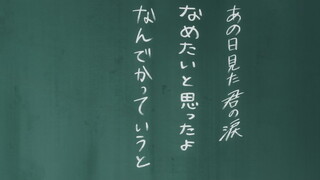 あの日見た君の涙
なめたいと思ったよ
なんでかっていうと